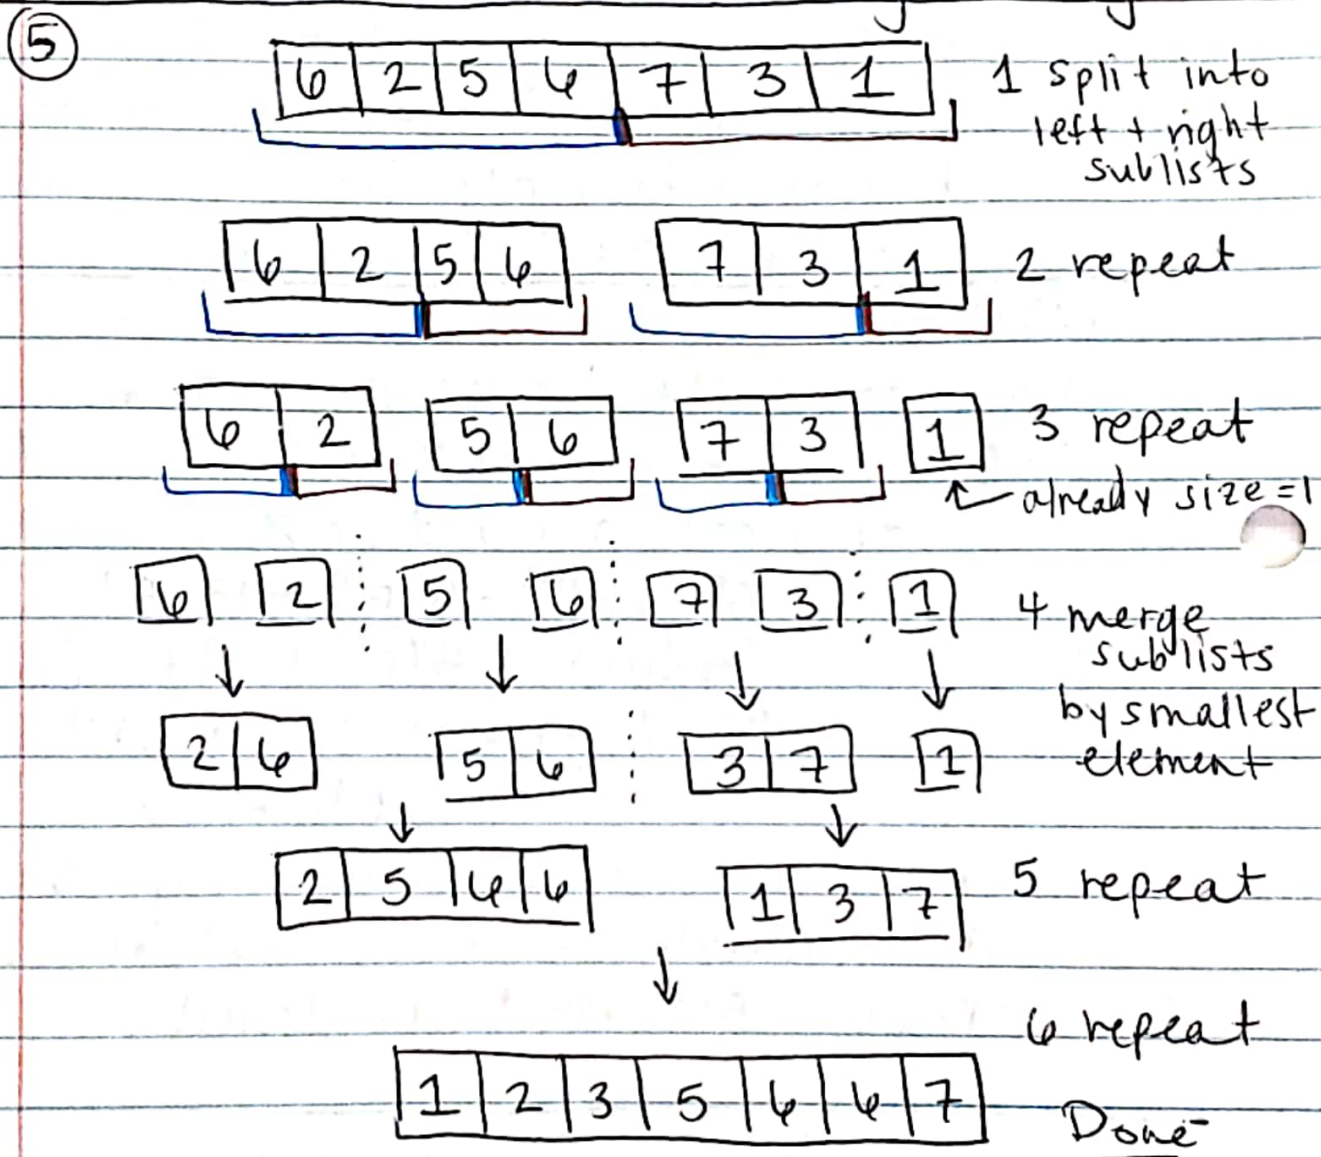 5
6 2 5 6 7 3 1 1 split into
left + right
sublists
6 2 5 6 7 3 1 2 repeat
6 2 5 6 7 3 1 3 repeat
already size=1
6 2 5 6 7 3 1 4 merge
sublists
by smallest
2 6 5 6 3 7 1 element
2 5 6 6 1 3 7 5 repeat
6 repeat
1 2 3 5 6 6 7
Done